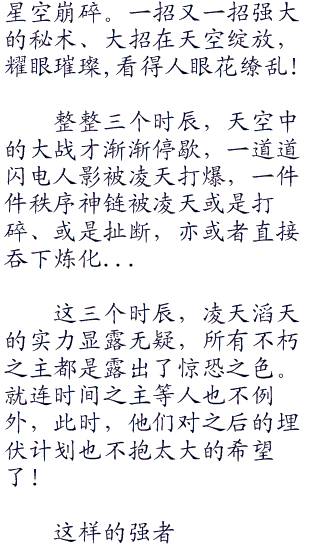 星空崩碎。一招又一招强大
的秘术、大招在天空绽放，
耀眼璀璨,看得人眼花缭乱!
整整三个时辰，天空中
的大战才渐渐停歇，一道道
闪电人影被凌天打爆，一件
件秩序神链被凌天或是打
碎、或是扯断，亦或者直接
吞下炼化...
这三个时辰，凌天滔天
的实力显露无疑，所有不朽
之主都是露出了惊恐之色。
就连时间之主等人也不例
外，此时，他们对之后的埋
伏计划也不抱太大的希望
了!
这样的强者